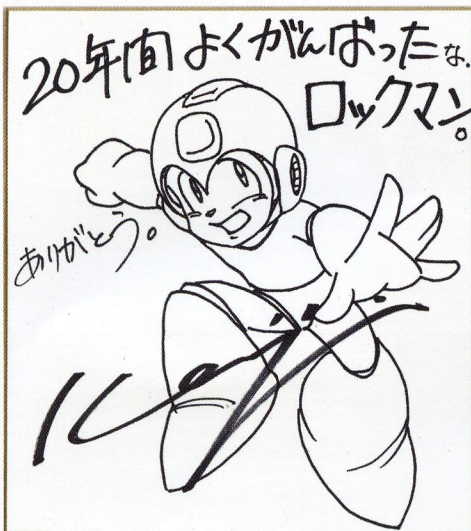 20年間よくがんばったな。
ロックマン。
ありがとう。